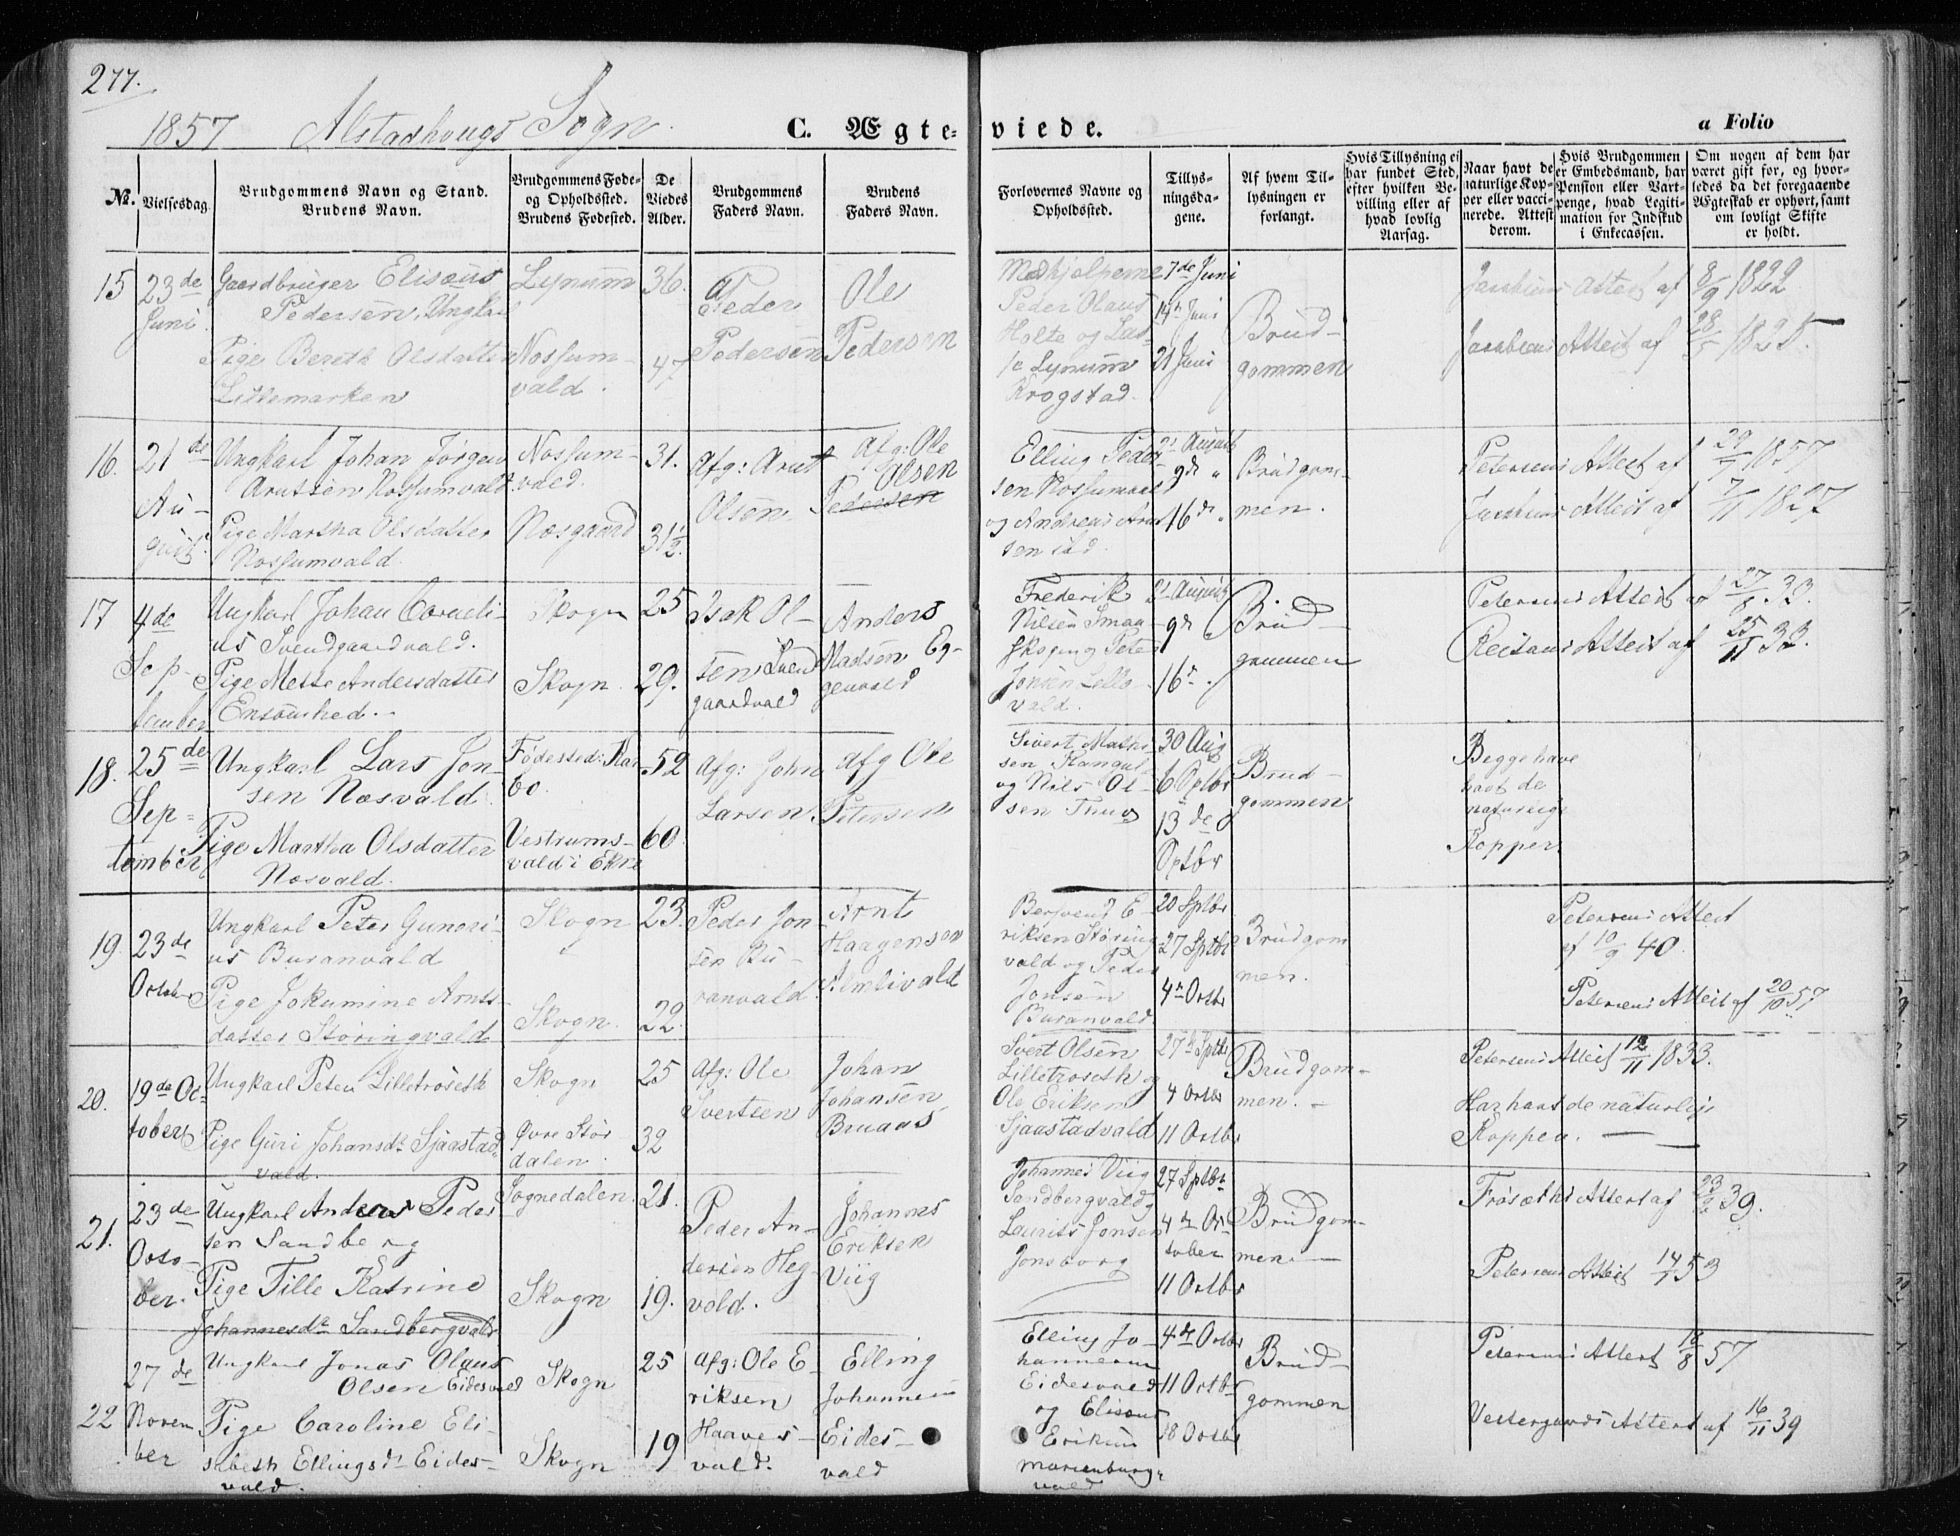 277.
1857 Alstadhougs Sogn.
C. Ægteviede.
a Folio
No.
Vielsesdag.
Brudgommens Navn og Stand.
Brudens Navn.
Brudgommens Føde-
og Opholdssted.
Brudens Fødested.
De
Viedes
Alder.
Brudgommens
Faders Navn.
Brudens
Faders Navn.
Forlovernes Navne og
Opholdssted.
Tillys-
ningsda-
gene.
Af hvem Til-
lysningen er
forlangt.
Hvis Tillysning ei
har fundet Sted,
efter hvilken Be-
villing eller af
hvad lovlig
Aarsag.
Naar havt de
naturlige Kop-
per eller vacci-
nerede. Attest
derom.
Hvis Brudgommen
er Embedsmand, har
Pension eller Vart-
penge, hvad Legiti-
mation for Indskud
i Enkecassen.
Om nogen af dem har
været gift for, og hvor-
ledes da det foregaaende
Ægteskab er ophørt, samt
om lovligt Skifte
er holdt.
15
23de
Juni
Gaardbruger Elisæus
Pedersen, Ungkarl
Pige Bereth Olsdatter
Lillemarken
Lynum
Nossum-
vald.
36.
47
Peder
Pedersen
Ole
Pedersen
Medhjelperne
Peder Olaus
Holte og Las-
se Lynum
Krogstad.
7de Juni
14de Juni
21 Juni
Brud-
gommen
Jacobsens Attest af 8/9 1822
Jacobsens Attest af 28/5 1825.
16.
21de
Au-
gust.
Ungkarl Johan Jørgen
Arntsen Nossumvald
Pige Martha Olsdatter
Nossumvald.
Nossum-
vald.
Næsgaard
31.
31½
Afg: Arnt
Olsen
Afg: Ole
Olsen
Pedersen
Elling Peder-
sen Nossumvald
og Andreas Arnt-
sen ibd.
2d August
9de "
16de "
Brudgom-
men.
Petersens Attest af 29/7 1857
Jacobsens Attest af 7/11 1827
17
4de
Sep-
tember
Ungkarl Johan Corneli-
us Svendgaardvald.
Pige Mette Andersdatter
Ensomhed.
Skogn
Skogn.
25
29.
Isak Ol-
sen Svend
gaardvald
Anders
Madsen Eg-
genvald
Frederik
Nilsen Smaa-
skog og Peter
Jonsen Lello
vald.
2d August
9de
16de.
Brud-
gommen
Petersens Attest af 27/8 33.
Reitans Attest af 25/11 33.
18.
25de
Sep-
tember
Ungkarl Lars Jon-
sen Næsvald.
Pige Martha Olsdatter
Næsvald.
Fødested: Kar-
bo.
Vestrums-
vald i Ekne
52
60.
Afg: John
Larsen.
Afg Ole
Petersen
Sivert Mathi-
sen
og Nils Ol-
sen
30 Aug
6 Sptbr
13de
Sptbr
Brud-
gommen
Begge have
havt de
naturlige
Kopper.
19.
23de
October
Ungkarl Peter Guneri-
us Buranvald
Pige Jokumine Arnts-
datter Støringvald
Skogn
Skogn.
23.
22.
Peder Jon-
sen Bu-
ranvald.
Arnt
Haagensen
Almlivald
Bersvend E-
riksen Støring
vald og Peder
Jonsen
Buranvald.
20 Sptbr
27 Sptbr
4de Octbr
Brudgom
men.
Petersens Attest
af 10/9 40.
Petersens Attest af 20/10 57
20.
19de Oc-
tober
Ungkarl Peter Lilletroseth
Pige Guri Johansdr Sjaastad
vald.
Skogn
Øvre Stør
dalen.
25
32
Afg: Ole
Svertsen
Johan
Johansen
Bruaas
Svert Olsen
Lilletroseth og
Ole Eriksen
Sjaastadvald
27de Sptbr
4 Octbr
11 Octbr
Brudgom-
men.
Petersens Attest 12/11 1833.
Har havt de naturlige
Kopper.
21.
23de
Octo-
ber.
Ungkarl Anders Peder
sen Sandberg
Pige Tille Katrine
Johannesdr Sandbergvald
Sognedalen.
Skogn
21.
19.
Peder An-
dersen Heg-
vold.
Johannes
Eriksen
Viig
Johannes Viig
Sandbergvald og
Laurits Jonsen
Jonsborg
27 Sptbr
4de Oc
tober
11 Octbr
Brudgom-
men
Frøseths Attest af 23/6 39.
Petersens Attest 14/7 53
22
27de
Novem
ber
Ungkarl Jonas Olaus
Olsen Eidesvald
Pige Caroline Eli-
sabeth Ellingsdr Eides-
vald.
Skogn
Skogn
25
19
Afg: Ole E-
riksen
Haaves-
vald.
Elling
Johannesen
Eides-
vald
Elling Jo-
hannesen
Eidesvald
og Elisæus
Eriksen
Marienborg-
vald
4de Octbr
11 Octbr
18 Octbr
Brud-
gommen
Petersens Attest 18/8 57
Vestergaards Attest af 16/11 39